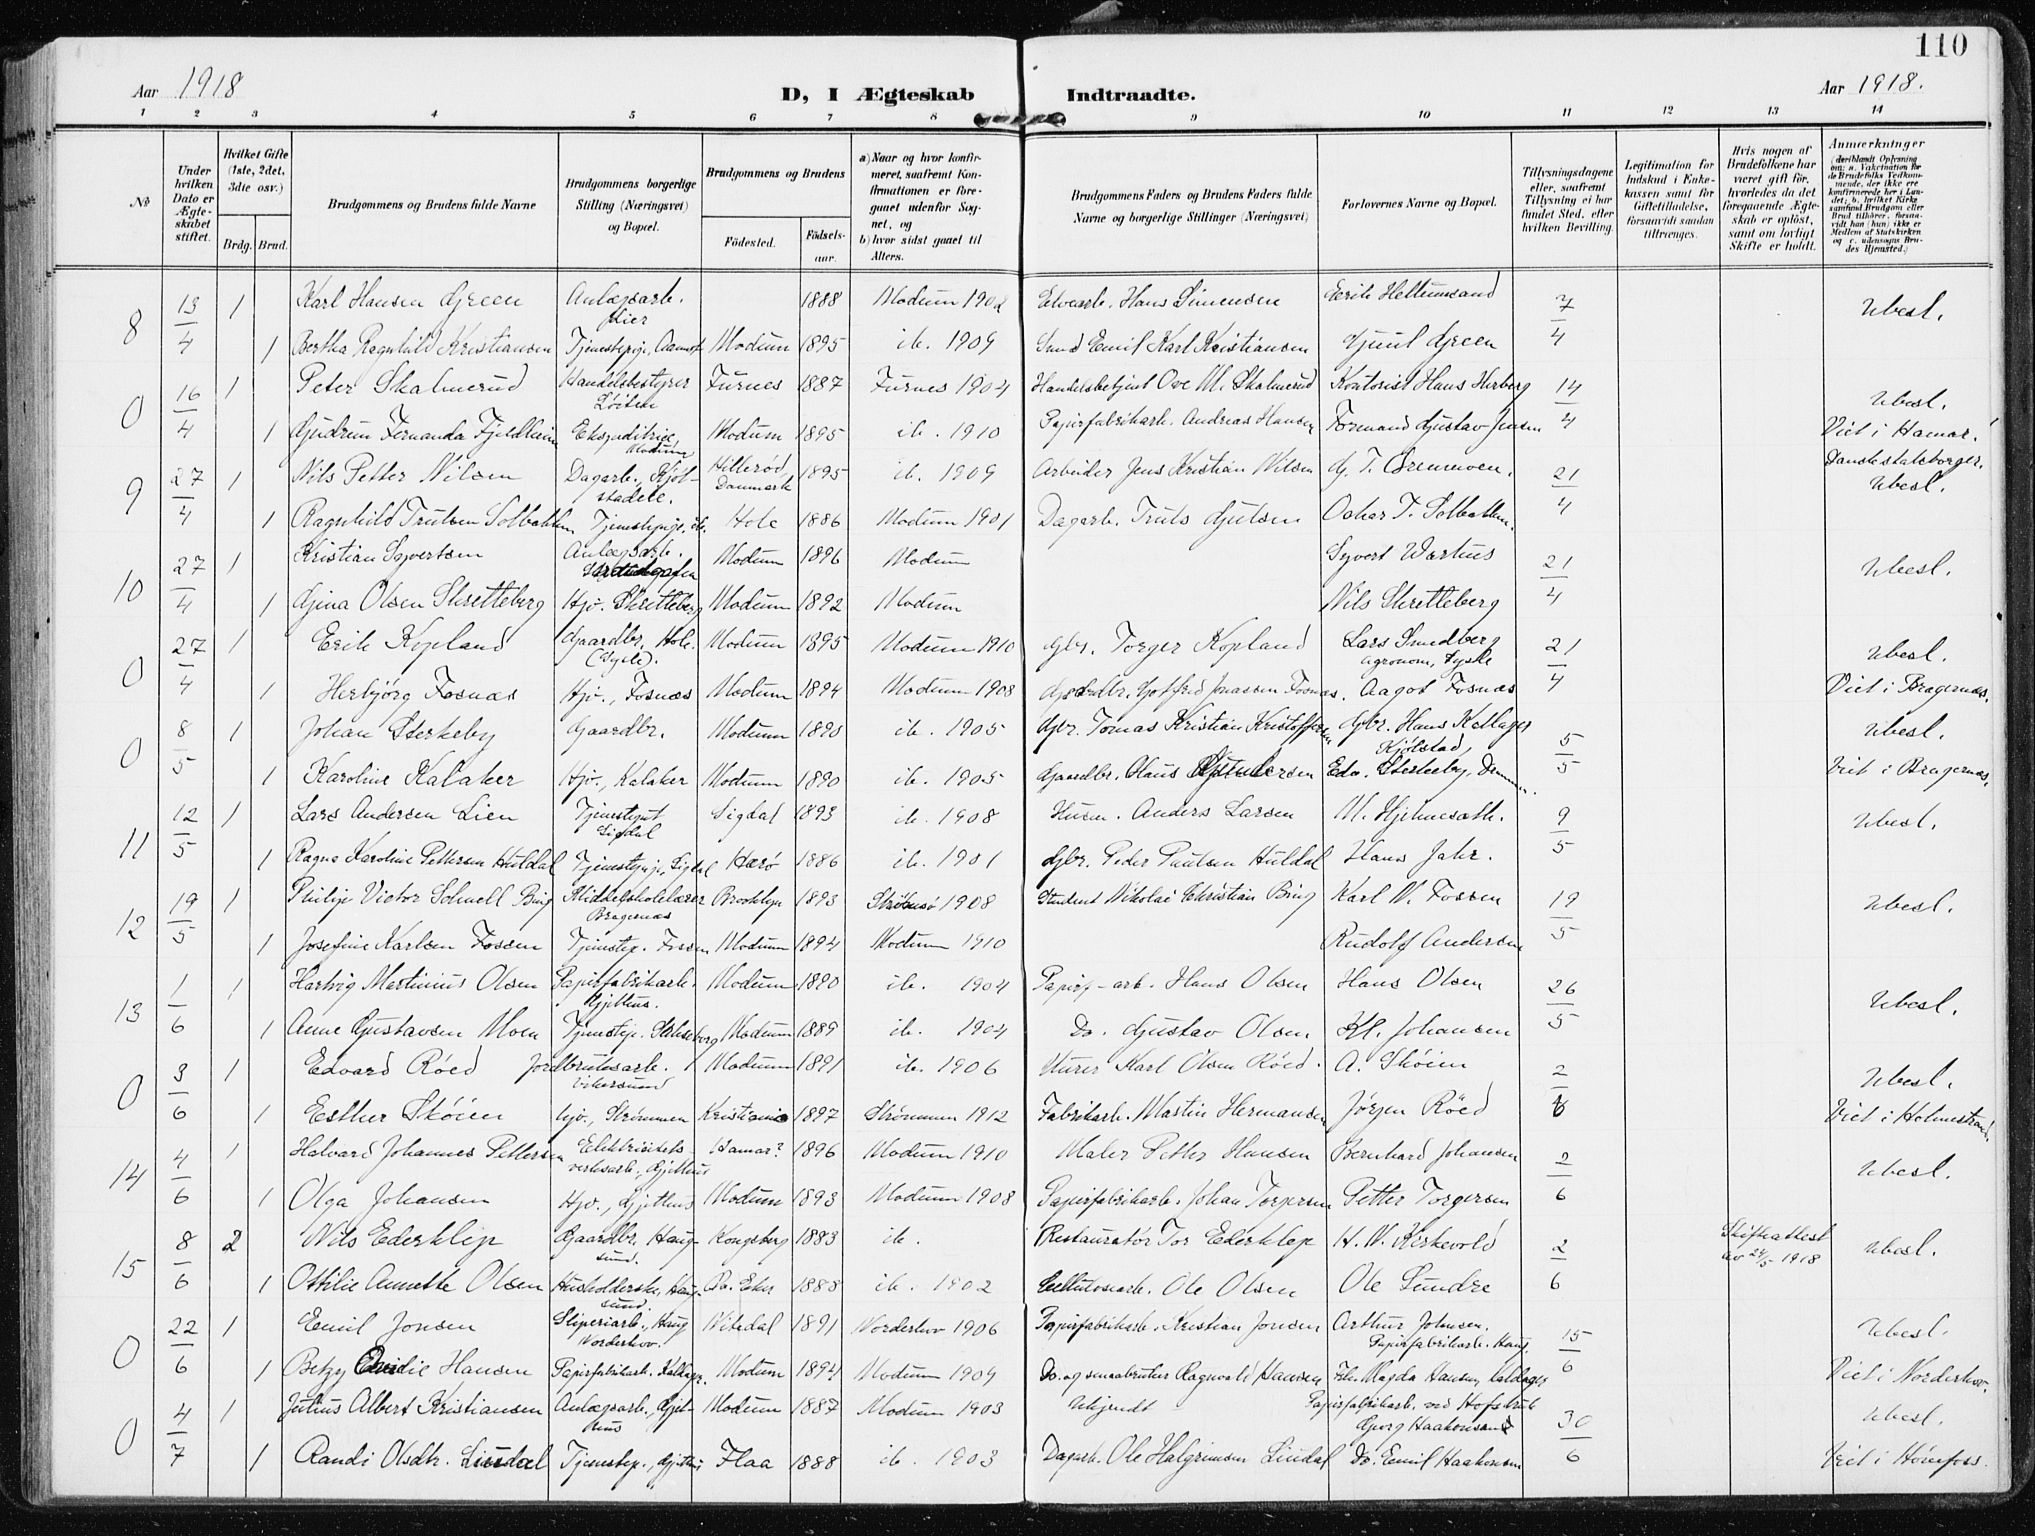 110
Aar 1918
D, I Ægteskab Indtraadte.
Aar 1918.
1 2 3 4 5 6 7 8 9 10 11 12 13 14
No
Under hvilken Dato er Ægteskabet stiftet.
Hvilket Gifte (1ste, 2det, 3die osv.)
Brdg. Brud.
Brudgommens og Brudens fulde Navne
Brudgommens borgerlige Stilling (Næringsvei) og Bopæl.
Brudgommens og Brudens
Födested.
Födselsaar.
a) Naar og hvor konfirmeret, saafremt Konfirmationen er foregaaet udenfor Sognet, og
b) hvor sidst gaaet til Alters.
Brudgommens Faders og Brudens Faders fulde Navne og borgerlige Stillinger (Næringsvei)
Forlovernes Navne og Bopæl.
Tillysningsdagene eller, saafremt Tillysning ei har fundet Sted, efter hvilken Bevilling.
Legitimation for Indskud i Enkekassen samt for Giftetilladelse, forsaavidt saadan tiltrænges.
Hvis nogen af Brudefolkene har været gift för, hvorledes da det foregaaende Ægteskab er oplöst, samt om lovligt Skifte er holdt.
Anmærkninger (deriblandt Oplysning om: a. Vakcination for de Brudefolks Vedkommende, der ikke ere konfirmerede her i Landet; b. hvilket Kirkesamfund Brudgom eller Brud tilhörer, forsaavidt han (hun) ikke er Medlem af Statskirken og c. udensogns Brudes Hjemsted.)
8 13/4 1 Karl Hansen Green Anlægsarb. Lier 1888 Modum 1902 Elvearb. Hans Simensen Erik Hellumsand 7/4 Ubesl.
1 Bertha Ragnhild Kristiansen Tjenestepige, Aamot Modum 1895 ib. 1909 Smed Emil Karl Kristiansen Gjuul Green
0 16/4 1 Peter Skalmerud Handelsbestyrer Löiten Furnes 1887 Furnes 1904 Handelsbetjent Ove M. Skalmerud Kontorist Hans Herberg 14/4 Ubesl.
1 Gudrun Fernanda Fjeldheim Ekspeditrice, Modum Modum 1895 ib. 1910 Papirfabrikarb. Andreas Hansen Formand Gustav Jensen Viet i Hamar.
9 27/4 1 Nils Petter Nilsen Dagarb., Kjölstadele. Hillerød, Danmark 1895 ib. 1909 Arbeider Jens Kristian Nilsen G. T. 21/4 Dansk statsborger. Ubesl.
1 Ragnhild Trulsen Solbakken Tjenestepige, ib. Hole 1886 Modum 1901 Dagarb. Truls Gulsen Oskar T. Solbakken.
10 27/4 1 Kristian Syvertsen Anlægsarb. Modum 1896 Modum Syvert Wærtues 21/4 Ubesl.
1 Gina Olsen Skretteberg Hjv. Skretteberg Modum 1892 Modum Nils Skretteberg
0 27/4 1 Erik Kopland Gaardbr. Hole. (Tyske). Modum 1895 Modum 1910 Gbr. Torger Kopland Lars Smedberg agronom, Tyske 21/4 Ubesl.
1 Herbjörg Fosnæs Hjv., Fosnæs Modum 1894 Modum 1908 Gaardbr. Gotfred Jonassen Fosnæs. Aagot Fosnæs Viet i Bragernæs.
0 8/5 1 Johan Sterkeby Gaardbr. Modum 1890 ib. 1905 Gbr. Tomas Kristian Kristoffersen Gbr. Hans Kallager Kjölstad, 5/5 Ubesl.
1 Karoline Kalaker Hjv., Kalaker Modum 1890 ib. 1905 Gaardbr. Olaus Edv. Sterkeby, Drammen. Viet i Bragernæs.
11 12/5 1 Lars Andersen Lien Tjenestegut Sigdal Sigdal 1893 ib. 1908 Husm. Anders Larsen M. 9/5 Ubesl.
1 Ragna Karoline Pettersen Huldal Tjenestepige, Sigdal Herø 1886 ib. 1901 Gbr. Peder Paulsen Huldal Hans Jahr.
12 19/5 1 Philip Victor Schnell Bing Middelskolelærer Bragernæs Brooklyn 1893 Strömsö 1908 Student Nikolai Christian Bing Karl N. Fossen 19/5 Ubesl.
1 Josefine Karlsen Fossen Tjenstep. Fossen Modum 1894 Modum 1910 Rudolf Andersen
13 1/6 1 Hartvig Martinius Olsen Papirfabrikarb. Gjethus. Modum 1890 ib. 1904 Papirf-arb. Hans Olsen Hans Olsen 26/5 Ubesl.
1 Anne Gustavsen Moen Tjenestep. Modum 1889 ib. 1904 Do. Gustav Olsen Kl. Johansen
0 3/6 1 Edvard Röed Jordbruksarb. Vikersund Modum 1891 ib. 1906 Murer Karl Olsen Röed. A. Sköien 2/6 Ubesl.
1 Esther Sköien hjv., Strömmen Kristiania 1897 Strømmen 1912 Fabrikarb. Martin Hermansen Jörgen Röed Viet i Holmestrand.
14 4/6 1 Halvard Johannes Pettersen Elektricitetsverksarb., Gjethus Hamar? 1896 Modum 1910 Maler Petter Hansen Bernhard Johansen 2/6 Ubesl.
1 Olga Johansen Hjv., Gjethus Modum 1893 Modum 1908 Papirfabrikarb. Johan Torgersen Petter Torgersen
15 8/6 2 Nils Ederklep Gaardbr. Haugsund. Kongsberg 1883 ib. Restauratör Tor Ederklep H. N. Kirkevold 2/6 Skifteattest av 24/5 1918 Ubesl.
1 Ottilie Annette Olsen Husholderske, Haugsund. Ø. Eker 1888 ib. 1902 Cellulosearb. Ole Olsen Ole Sundre
0 22/6 1 Emil Jonsen Sliperiarb., Haug Norderhov. Nitedal 1891 Norderhov 1906 Papirfabrikarb. Kristian Jonsen Arthur Johnsen. Papirfabrikarb. Haug. 15/6 Ubesl.
1 Betzy Emilie Hansen Papirfabrikarb. Kallager. Modum 1894 Modum 1909 Do. og smaabruker Ragnvald Hansen Frk. Magda Hansen, Kallager Viet i Norderhov.
0 4/7 1 Julius Albert Kristiansen Anlægsarb., Gjethus Modum 1887 Modum 1903 Ukjendt Papirfabrikarb. ved Hofsbruk Georg Haakonsen 30/6 Ubesl.
1 Randi Olsdtr. Liudal Tjenestep., Gjethus Flaa 1888 ib. 1903 Dagarb. Ole Halgrimsen Liudal Do. Emil Haakonsen Viet i Hönefoss.